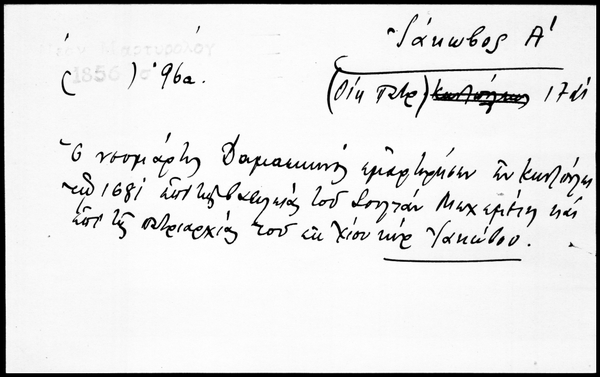 Νέον Μαρτυρολόγ
1856 σ
Ἰάκωβος Α'
( ) σ. 96α.
(Οἰκ Πατρ) 17 αἰ
Ὁ νεομάρτυς Δαμασκηνός ἐμαρτύρησεν ἐν Κων)πόλει
τῷ 1681 ἐπί τῆς βασιλείας τοῦ Σουλτάν Μεχεμέτη καί
ἐπί τῆς πατριαρχίας τοῦ ἐκ Χίου κύρ Ἰακώβου.